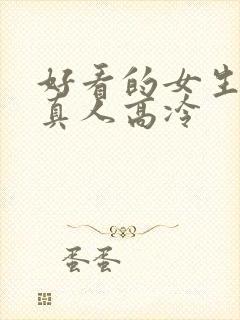 好看的女生
真人高冷
蛋蛋